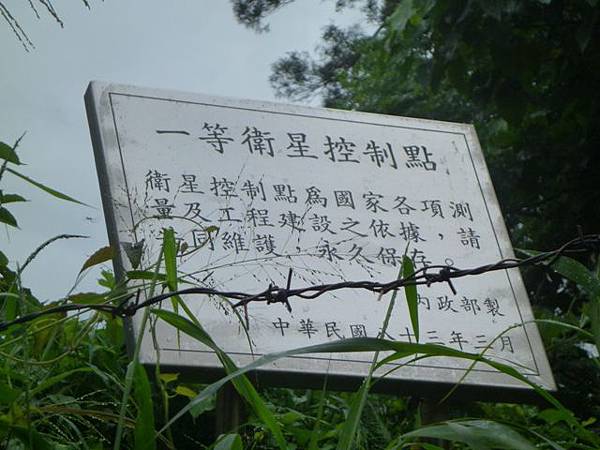 一等衛星控制點
衛星控制點為國家各項測
量及工程建設之依據，請
同維護，永久保存。
內政部製
中華民國 十三年三月